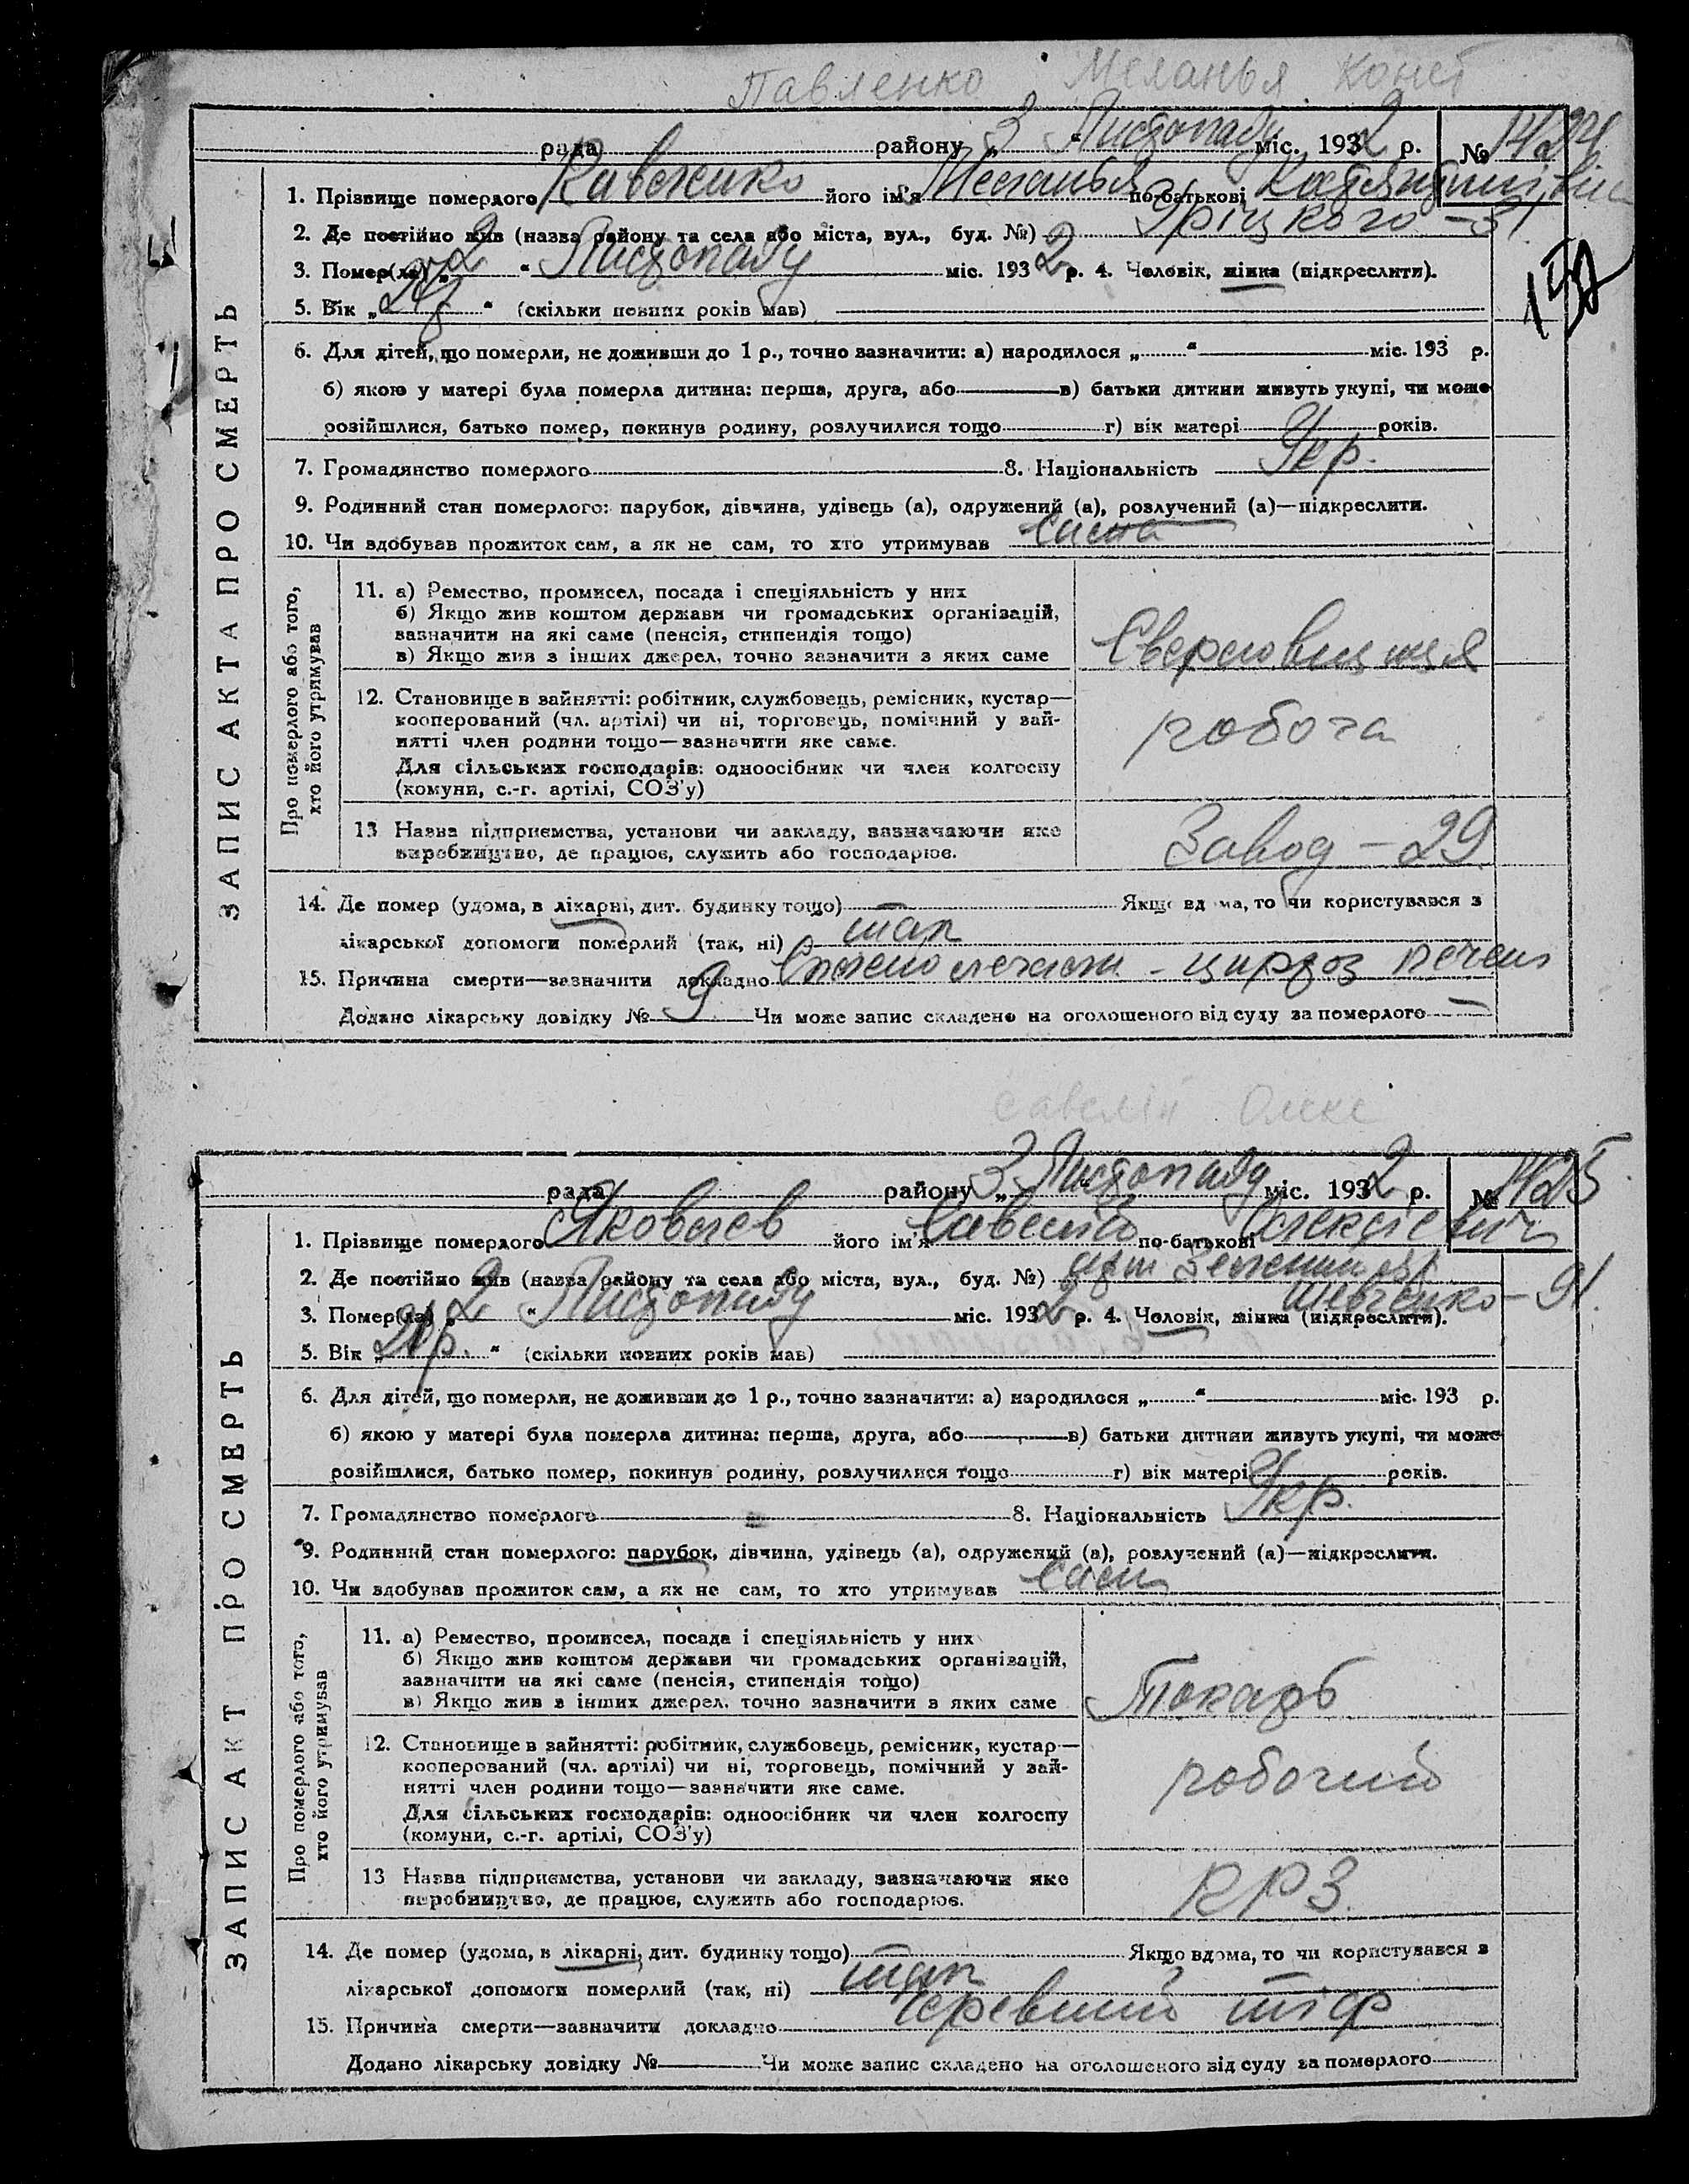 Павленко Меланья Конст
рада району „3 Листопаду міс. 1932 р. №
1. Прізвище померлого його ім'я Меланья по-батькові
2. Де постійно жив (назва району та села або міста, вул., буд. №) Уріцкого - 31
3. Помер(ла) „2 " Листопаду міс. 1932 р. 4. Чоловік, жінка (підкреслити).
5. Вік „ " (скільки повних років мав)
6. Для дітей, що померли, не доживши до 1 р., точно зазначити: а) народилося „ " міс. 193 р.
б) якою у матері була померла дитина: перша, друга, або в) батьки дитини живуть укупі, чи може
розійшлися, батько помер, покинув родину, розлучилися тощо г) вік матері років.
7. Громадянство померлого 8. Національність Укр.
9. Родинний стан померлого: парубок, дівчина, удівець (а), одружений (а), розлучений (а)—підкреслити.
10. Чи здобував прожиток сам, а як не сам, то хто утримував сама
ЗАПИС АКТА ПРО СМЕРТЬ
Про померлого або того, хто його утримував
11. а) Ремество, промисел, посада і спеціяльність у них
б) Якщо жив коштом держави чи громадських організацій,
зазначити на які саме (пенсія, стипендія тощо)
в) Якщо жив з інших джерел, точно зазначити з яких саме
Сверловщиця
12. Становище в зайнятті: робітник, службовець, ремісник, кустар—
кооперований (чл. артілі) чи ні, торговець, помічний у зай-
нятті член родини тощо—зазначити яке саме.
Для сільських господарів: одноосібник чи член колгоспу
(комуни, с.-г. артілі, СОЗ'у)
робоча
13 Назва підприємства, установи чи закладу, зазначаючи яке
виробництво, де працює, служить або господарює.
Завод - 29
14. Де помер (удома, в лікарні, дит. будинку тощо) Якщо вдома, то чи користувався з
лікарської допомоги померлий (так, ні) так
15. Причина смерти—зазначити докладно цирроз печени
Додано лікарську довідку № 9 Чи може запис складено на оголошеного від суду за померлого
савелій Олекс
рада району „3 Листопаду міс. 1932 р. № 1425
1. Прізвище померлого Яковлев його ім'я Савелій по-батькові Олексієвич
2. Де постійно жив (назва району та села або міста, вул., буд. №)
Шевченко - 91.
3. Помер(ла) „2 " Листопаду міс. 1932 р. 4. Чоловік, жінка (підкреслити).
5. Вік „ р. " (скільки повних років мав)
6. Для дітей, що померли, не доживши до 1 р., точно зазначити: а) народилося „ " міс. 193 р.
б) якою у матері була померла дитина: перша, друга, або в) батьки дитини живуть укупі, чи може
розійшлися, батько помер, покинув родину, розлучилися тощо г) вік матері років.
7. Громадянство померлого 8. Національність Укр.
9. Родинний стан померлого: парубок, дівчина, удівець (а), одружений (а), розлучений (а)—підкреслити.
10. Чи здобував прожиток сам, а як не сам, то хто утримував сам
ЗАПИС АКТ ПРО СМЕРТЬ
Про померлого або того, хто його утримував
11. а) Ремество, промисел, посада і спеціяльність у них
б) Якщо жив коштом держави чи громадських організацій,
зазначити на які саме (пенсія, стипендія тощо)
в) Якщо жив з інших джерел, точно зазначити з яких саме
Токарь
12. Становище в зайнятті: робітник, службовець, ремісник, кустар—
кооперований (чл. артілі) чи ні, торговець, помічний у зай-
нятті член родини тощо—зазначити яке саме.
Для сільських господарів: одноосібник чи член колгоспу
(комуни, с.-г. артілі, СОЗ'у)
робочий
13 Назва підприємства, установи чи закладу, зазначаючи яке
виробництво, де працює, служить або господарює.
КРЗ.
14. Де помер (удома, в лікарні, дит. будинку тощо) Якщо вдома, то чи користувався з
лікарської допомоги померлий (так, ні) так
15. Причина смерти—зазначити докладно Черевний тіф
Додано лікарську довідку № Чи може запис складено на оголошеного від суду за померлого